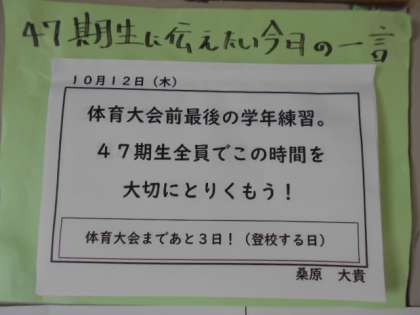 47期生に伝えたい今日の一言
10月12日（木）
体育大会前最後の学年練習。
47期生全員でこの時間を
大切にとりくもう！
体育大会まであと3日！（登校する日）
桑原　大貴